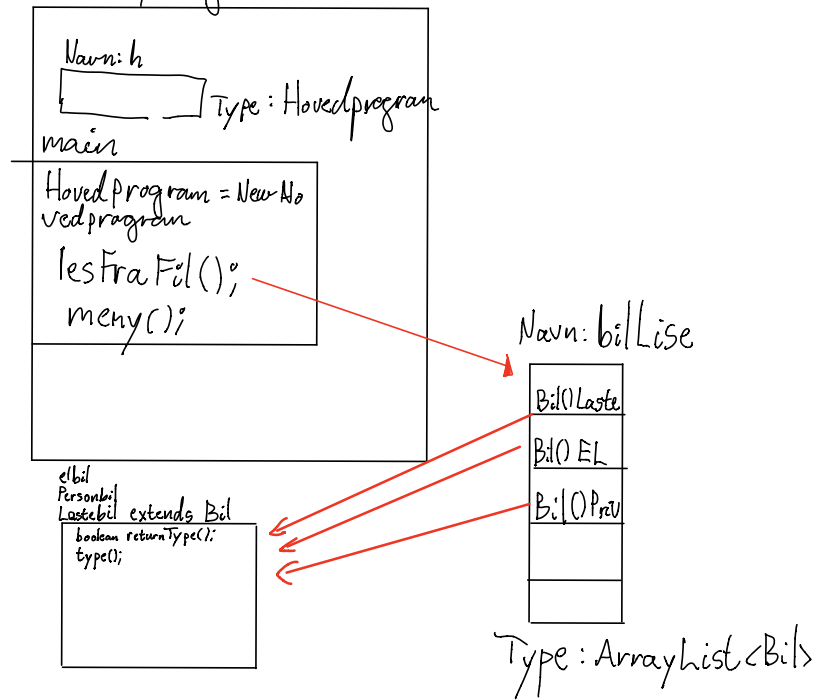 Navn: h
Type: Hovedprogram
main
Hovedprogram = New Ho
vedprogram
lesFraFil();
meny();
Navn: bilLise
Bil() Laste
Bil() EL
Bil() Priv
elbil
Personbil
Lastebil extends Bil
boolean returnType();
type();
Type: ArrayList<Bil>